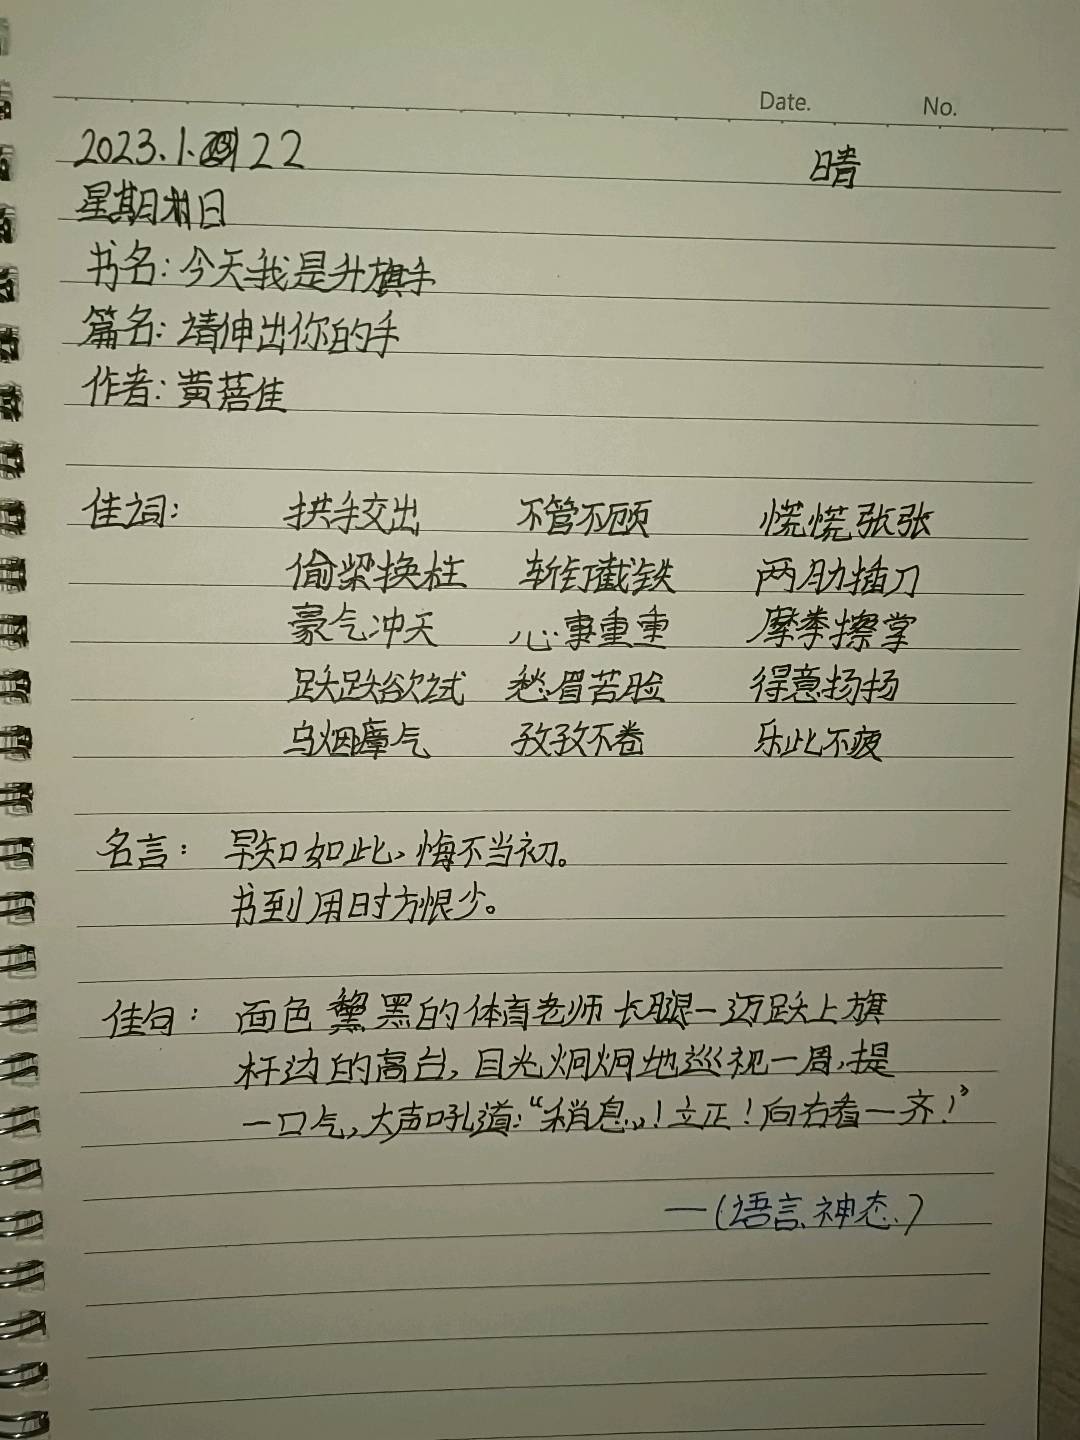 Date. No.
2023.1.22 晴
星期日
书名：今天我是升旗手
篇名：请伸出你的手
作者：黄蓓佳
佳词： 拱手交出 不管不顾 慌慌张张
偷梁换柱 斩钉截铁 两肋插刀
豪气冲天 心事重重 摩拳擦掌
跃跃欲试 愁眉苦脸 得意扬扬
乌烟瘴气 孜孜不卷 乐此不疲
名言： 早知如此，悔不当初。
书到用时方恨少。
佳句： 面色黧黑的体育老师长腿一迈跃上旗
杆边的高台，目光炯炯地巡视一周，提
一口气，大声吼道：“稍息！立正！向右看一齐！”
—（语言、神态）